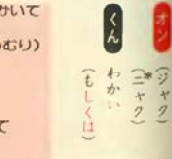 オン
(ジャク)
(*ニャク)
くん
わかい
(もしくは)
かいて
むり)
て